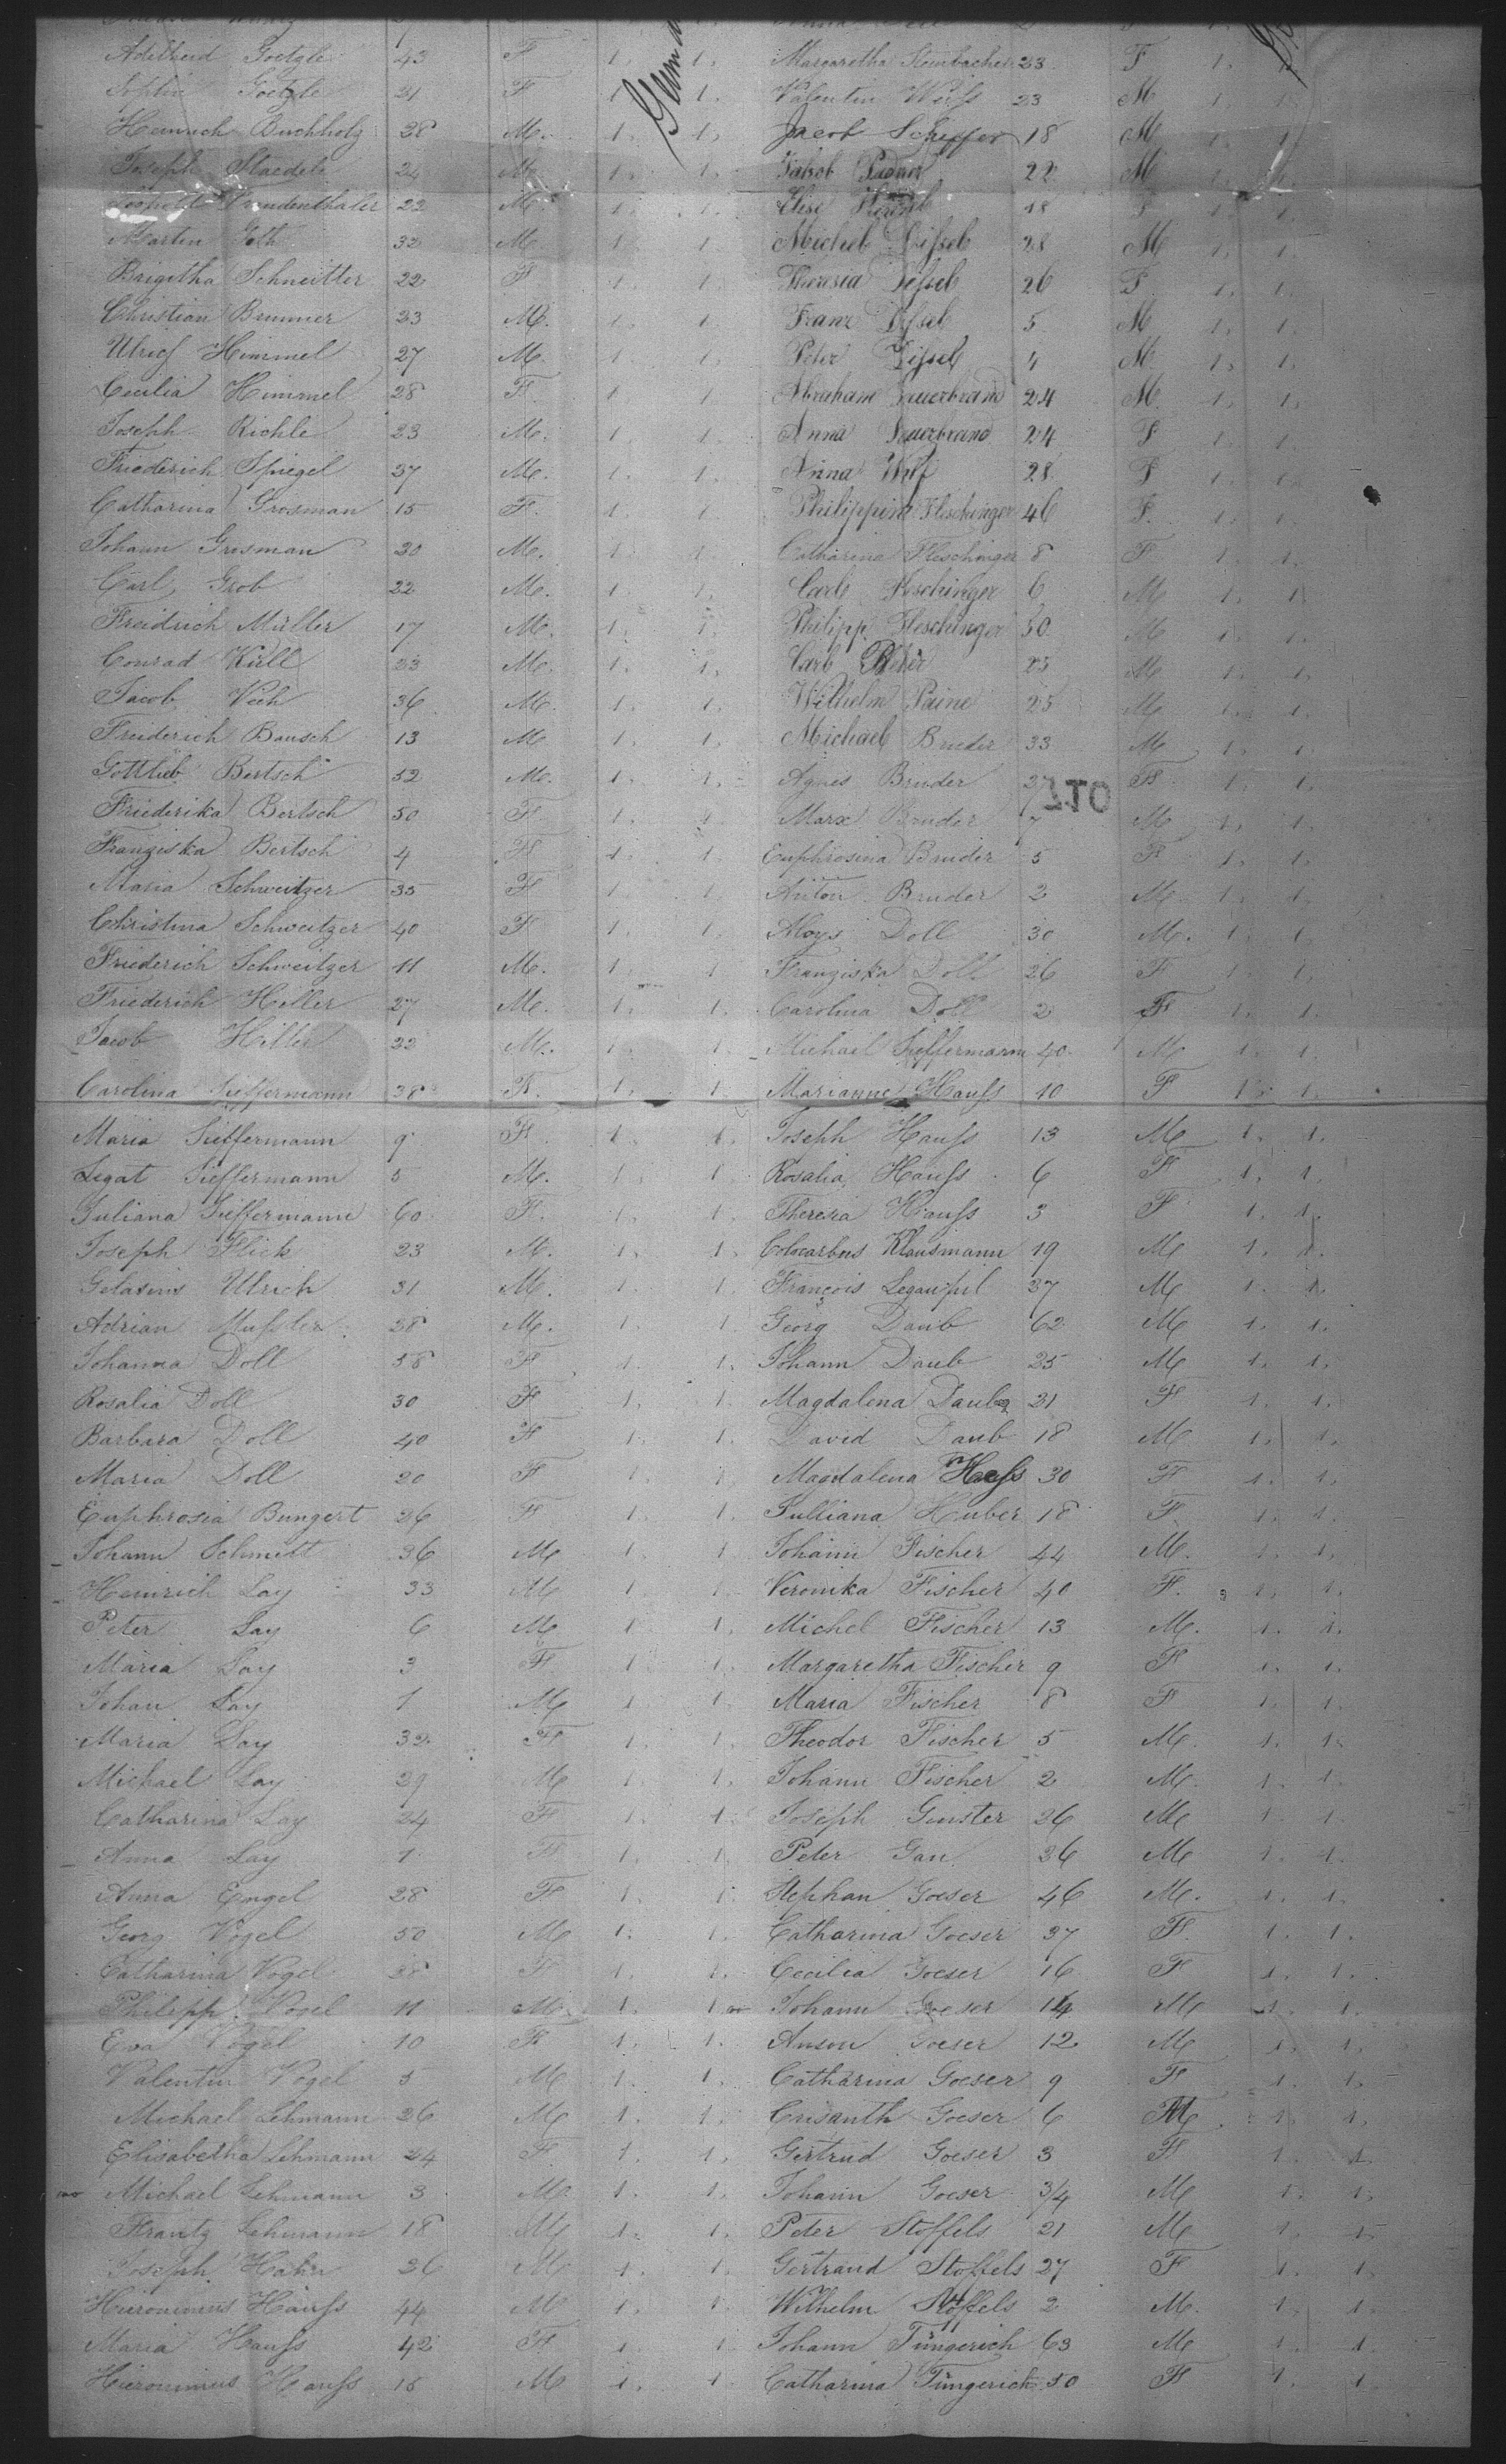 Adelheid Goetzle 43 F 1. 1. Margaretha Steinbacher 23 F 1. 1.
Sophie Goetzle 21 F 1 1. Valentin Weiss 23 M 1. 1.
Heinrich Buchholz 28 M. 1. 1. Jacob Scheffer 18 M 1. 1.
Joseph Staedele 24 M 1. 1. Jakob 22 M 1. 1.
Freudenthaler 22 M. 1. 1. Elise 18 F 1. 1.
Martin Goth 32 M 1. 1. Michel 28 M 1. 1.
Brigitha Schneitter 22 F 1. 1. Theresia 26 F. 1. 1.
Christian Brunner 23 M. 1. 1. Franz 5 M 1. 1.
Ulrich Himmel 27 M. 1. 1. Peter 4 M. 1. 1.
Cecilia Himmel 28 F. 1. 1. Abraham Feuerbrand 24 M. 1. 1.
Joseph Richle 23 M. 1. 1. Anna Feuerbrand 24 F 1. 1.
Friederich Spiegel 37 M. 1. 1. Anna Wolf 28 F 1. 1.
Catharina Grosman 15 F. 1. 1 Philippine Fleschinger 46 F. 1. 1.
Johann Grosman 30 M. 1. 1. Catharina Fleschinger 8 F 1. 1.
Carl Grob 22 M. 1. 1. Carl Fleschinger 6 M 1. 1.
Freidrich Müller 17 M. 1. 1. Philipp Fleschinger 50 M 1. 1.
Conrad Küll 23 M. 1. 1. Carl 25 M 1. 1.
Jacob Veeh 36 M. 1. 1. Wilhelm Paine 25 M 1. 1.
Freiderich Bausch 13 M 1. 1. Michael Bruder 33 M 1. 1.
Gottlieb Bertsch 52 M. 1. 1. Agnes Bruder 37 F 1. 1.
Friederika Bertsch 50 F 1. 1. Marx Bruder 7 M 1. 1.
Franziska Bertsch 4 F 1. 1. Euphrosina Bruder 5 F 1. 1.
Maria Schweitzer 35 F 1. 1. Anton Bruder 2 M. 1. 1.
Christina Schweitzer 40 F 1. 1. Aloys Doll 30 M. 1. 1.
Friederich Schweitzer 11 M. 1. 1. Franziska Doll 26 F 1. 1.
Friederich Hiller 27 M. 1. 1. Carolina Doll 2 F 1. 1.
Jacob Hiller 22 M. 1. 1. Michael Sieffermann 40 M 1. 1.
Carolina Sieffermann 38 F. 1. 1. Marianne Hauss 10 F 1. 1.
Maria Sieffermann 9 F. 1. 1. Joseph Hauss 13 M 1. 1.
Legat Sieffermann 5 M. 1. 1. Rosalia Hauss 6 F 1. 1.
Juliana Sieffermann 60 F. 1. 1. Theresia Hauss 3 F 1. 1.
Joseph Flick 23 M. 1. 1. Klausmann 19 M 1. 1.
Gelasius Ulrich 31 M. 1. 1. François 37 M 1. 1.
Adrian Mussler 38 M. 1. 1. Georg Daub 62 M 1. 1.
Johanna Doll 58 F 1. 1. Johann Daub 25 M 1. 1.
Rosalia Doll 30 F 1. 1. Magdalena Daub 21 F 1. 1.
Barbara Doll 40 F 1. 1. David Daub 18 M 1. 1.
Maria Doll 20 F 1. 1. Magdalena Hess 30 F 1. 1.
Euphrosia Bungert 26 F 1. 1. Julliana Huber 18 F. 1. 1.
Johann Schmitt 36 M 1. 1. Johann Fischer 44 M. 1. 1.
Heinrich Lay 33 M 1. 1. Veronika Fischer 40 F. 1. 1.
Peter Lay 6 M 1. 1. Michel Fischer 13 M. 1. 1.
Maria Lay 3 F 1. 1. Margaretha Fischer 9 F 1. 1.
Johan Lay 1 M 1. 1. Maria Fischer 8 F 1. 1.
Maria Lay 32 F 1. 1. Theodor Fischer 5 M. 1. 1.
Michael Lay 29 M 1. 1. Johann Fischer 2 M. 1. 1.
Catharina Lay 24 F 1. 1. Joseph Ginster 26 M 1. 1.
Anna Lay 1 F 1. 1. Peter Gan 36 M 1. 1.
Anna Engel 28 F 1. 1. Stephan Goeser 46 M. 1. 1.
Georg Vogel 50 M 1. 1. Catharina Goeser 37 F. 1. 1.
Catharina Vogel 38 F 1. 1. Cecilia Goeser 16 F 1. 1.
Philipp Vogel 11 M 1. 1. Johann Goeser 14 M 1. 1.
Eva Vogel 10 F 1. 1. Anson Goeser 12 M 1. 1.
Valentin Vogel 5 M 1. 1. Catharina Goeser 9 F 1. 1.
Michael Lehmann 26 M 1. 1. Crisanth Goeser 6 M 1. 1.
Elisabetha Lehmann 24 F 1. 1. Gertrud Goeser 3 F 1. 1.
Michael Lehmann 3 M. 1. 1. Johann Goeser 3/4 M 1. 1.
Frantz Lehmann 18 M 1. 1. Peter Stoffels 21 M 1. 1.
Joseph Hahn 36 M 1. 1. Gertraud Stoffels 27 F 1. 1.
Hieronimus Hauss 44 M 1. 1. Wilhelm Stoffels 2 M. 1. 1.
Maria Hauss 42 F. 1. 1. Johann Füngerich 63 M 1. 1.
Hieronimus Hauss 15 M 1. 1. Catharina Füngerich 50 F 1. 1.